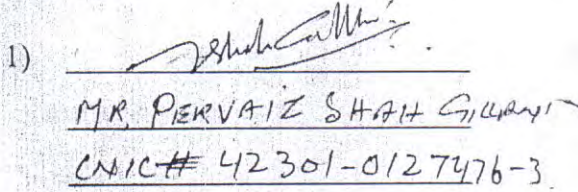 1)
MR PERVAIZ SHAH
CNIC# 42301-0127476-3